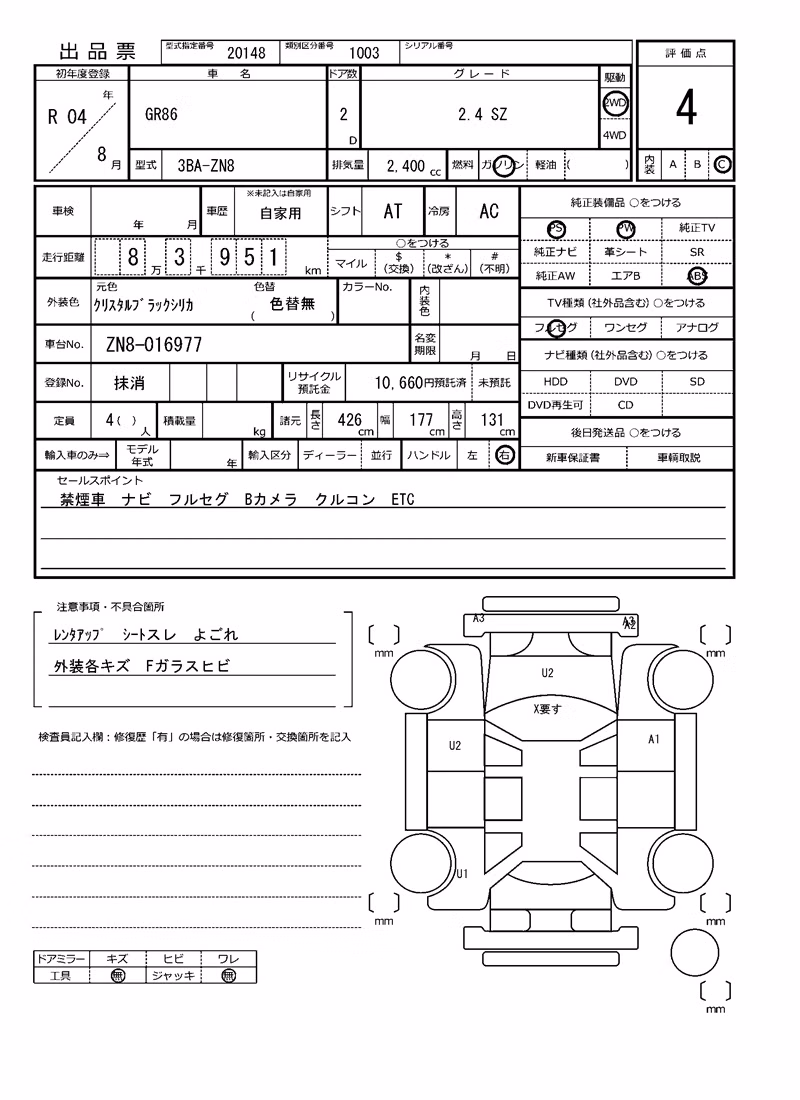 出品票 型式指定番号 20148 類別区分番号 1003 シリアル番号
評価点
4
内装 A B C
初年度登録 車名 ドア数 グレード 駆動
R 04 年 8 月 GR86 2 D 2.4 SZ 2WD
4WD
型式 3BA-ZN8 排気量 2,400 cc 燃料 ガソリン 軽油 ( )
車検 年 月 車歴 ※未記入は自家用 自家用 シフト AT 冷房 AC
走行距離 8 万 3 千 9 5 1 km ○をつける
マイル $(交換) *(改ざん) #(不明)
外装色 元色 クリスタルブラックシリカ 色替 色替無 ( ) カラーNo. 内装色
車台No. ZN8-016977 名変期限 月 日
登録No. 抹消 リサイクル預託金 10,660円預託済 未預託
定員 4( ) 人 積載量 kg 諸元 長さ 426 cm 幅 177 cm 高さ 131 cm
輸入車のみ⇒ モデル年式 年 輸入区分 ディーラー 並行 ハンドル 左 右
純正装備品 ○をつける
PS PW 純正TV
純正ナビ 革シート SR
純正AW エアB ABS
TV種類(社外品含む)○をつける
フルセグ ワンセグ アナログ
ナビ種類(社外品含む)○をつける
HDD DVD SD
DVD再生可 CD
後日発送品 ○をつける
新車保証書 車輌取説
セールスポイント
禁煙車 ナビ フルセグ Bカメラ クルコン ETC
注意事項・不具合箇所
レンタアップ シートスレ よごれ
外装各キズ Fガラスヒビ
検査員記入欄:修復歴「有」の場合は修復箇所・交換箇所を記入
ドアミラー キズ ヒビ ワレ
工具 無 ジャッキ 無
A3 A3 A2
mm mm
U2
X要す
U2 A1
U1
mm mm
mm